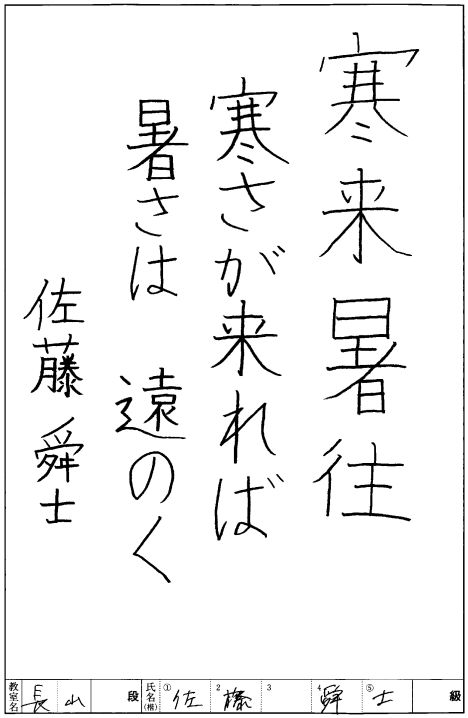 寒来暑往
寒さが来れば
暑さは 遠のく
佐藤 舜士
教室名 長山 段 氏名(楷) ①佐 2藤 3 4舜 ⑤士 級